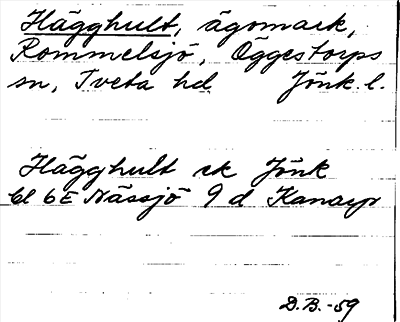 Hägghult, ägomark,
Rommelsjö, Öggestorps
sn, Tveta hd Jönk. l.
Hägghult ek Jönk
bl 6E Nässjö 9 d Kanarp
D.B.-59